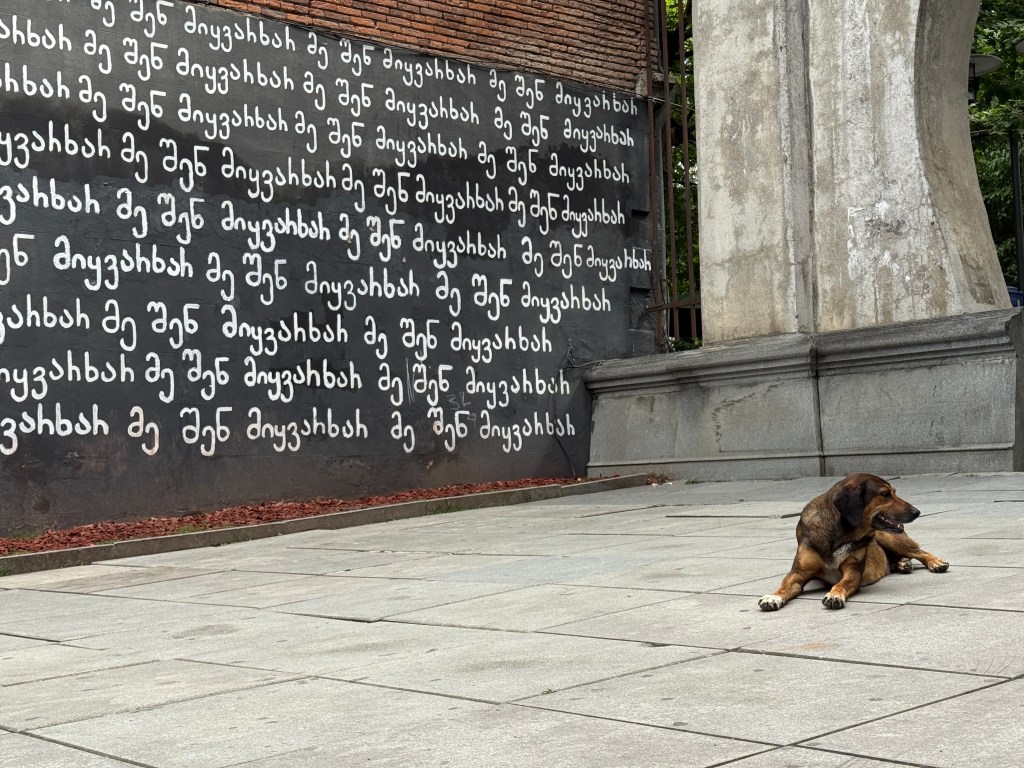 მე შენ მიყვარხარ მე შენ მიყვარხარ მე შენ მიყვარხარ
არხარ მე შენ მიყვარხარ მე შენ მიყვარხარ მე შენ მიყვარხარ
არხარ მე შენ მიყვარხარ მე შენ მიყვარხარ მე შენ მიყვარხარ
ყვარხარ მე შენ მიყვარხარ მე შენ მიყვარხარ მე შენ მიყვარხარ
ვარხარ მე შენ მიყვარხარ მე შენ მიყვარხარ მე შენ მიყვარხარ
შენ მიყვარხარ მე შენ მიყვარხარ მე შენ მიყვარხარ
ვარხარ მე შენ მიყვარხარ მე შენ მიყვარხარ
იყვარხარ მე შენ მიყვარხარ მე შენ მიყვარხარ
ვარხარ მე შენ მიყვარხარ მე შენ მიყვარხარ